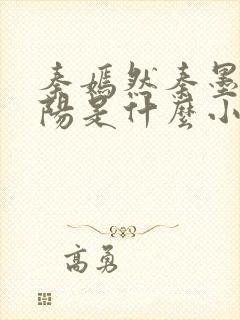 秦嫣然秦墨
陽是什麼小
高勇